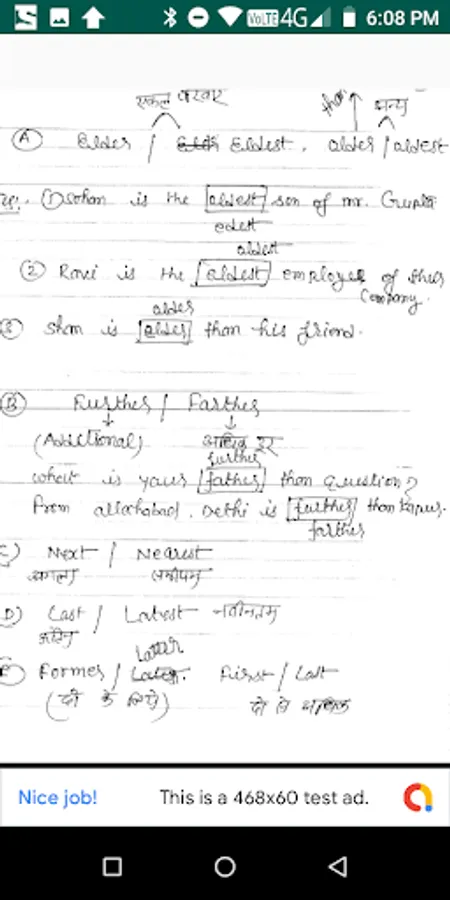 VoLTE 4G 6:08 PM
एकल परिवार than अन्य
(A) Elder / Eldest. older / oldest
(1) Sohan is the oldest son of mr. Gupta
edest
oldest
(2) Ravi is the oldest employee of this
Company.
older
(3) Sham is older than his friend.
(B) Further / Farther
(Additional) अधिक दूर
further
what is your father than question?
From allahabad. Delhi is further than Kanpur.
farther
C) Next / Nearest
अगला
D) Last / Latest नवीनतम
Latter
E) Former / Later. First / Last
(दो के लिये) दो से अधिक
Nice job! This is a 468x60 test ad.